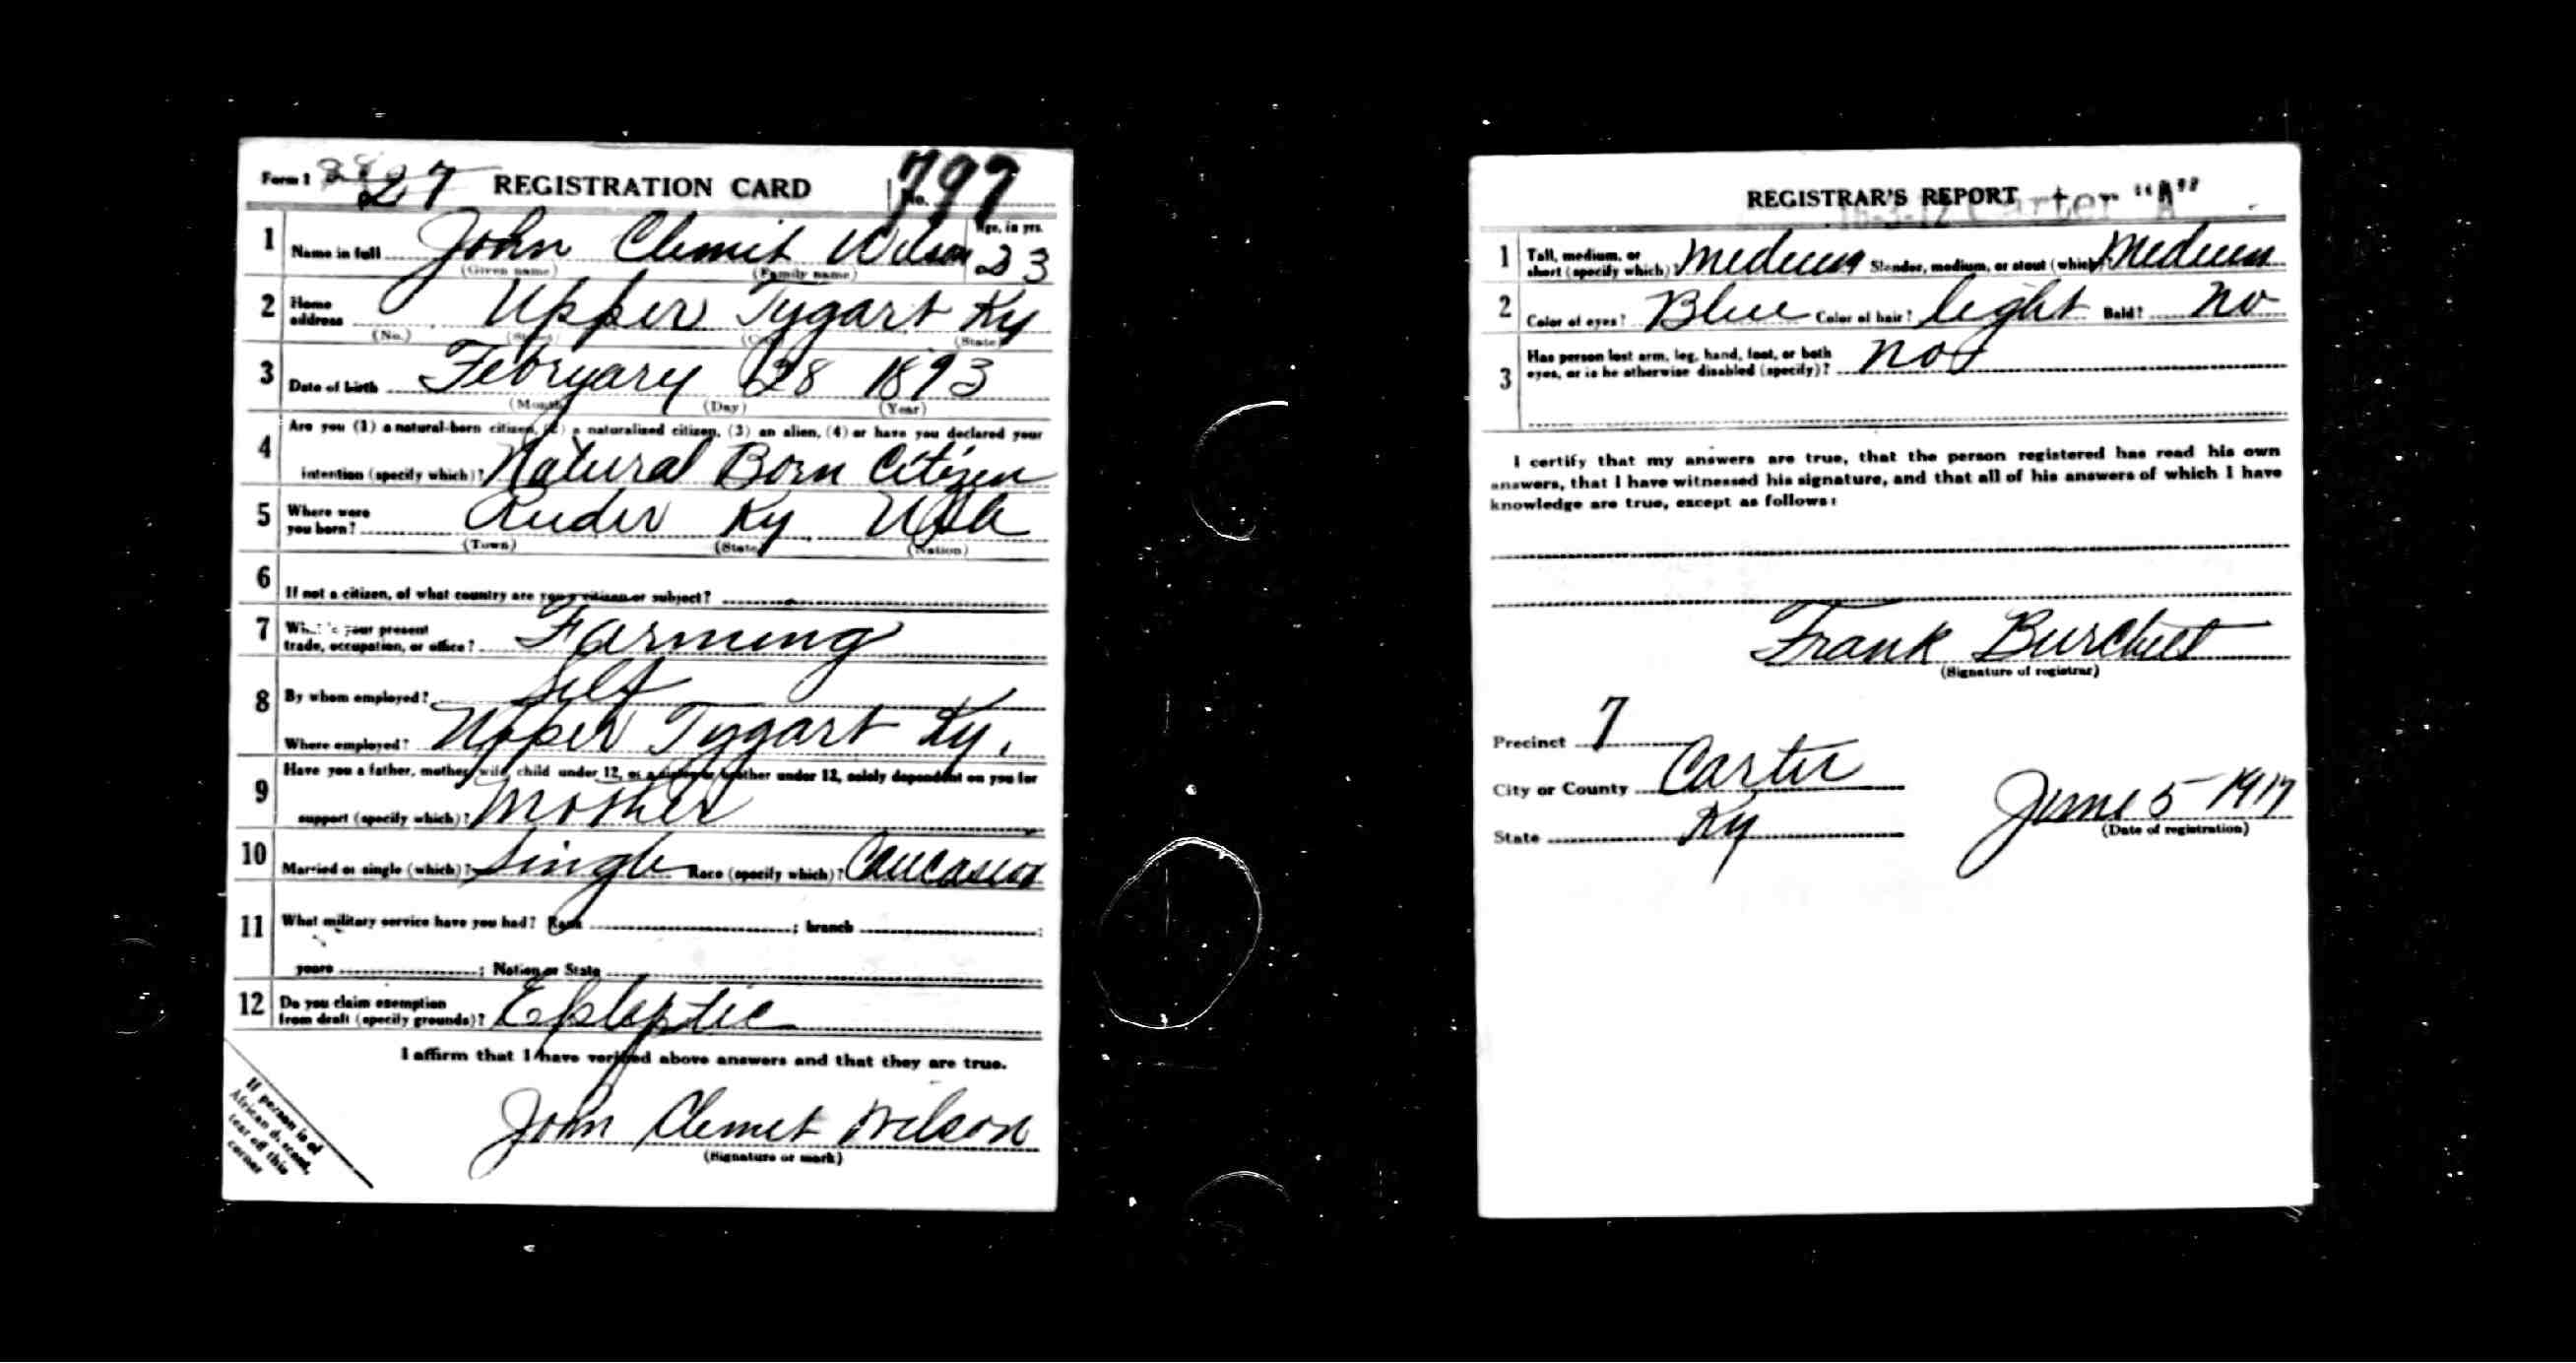 Form 1 27 REGISTRATION CARD No. 797
1 Name in full John Clemit Wilson Age, in yrs. 23
(Given name) (Family name)
2 Home address Upper Tygart Ky
(No.) (Street) (City) (State)
3 Date of birth February 28 1893
(Month) (Day) (Year)
4 Are you (1) a natural-born citizen, (2) a naturalized citizen, (3) an alien, (4) or have you declared your
intention (specify which)? Natural Born Citizen
5 Where were you born? Ky USA
(Town) (State) (Nation)
6 If not a citizen, of what country are you a citizen or subject?
7 What is your present
trade, occupation, or office? Farming
8 By whom employed? Self
Where employed? Upper Tygart Ky.
9 Have you a father, mother, wife, child under 12, or a sister or brother under 12, solely dependent on you for
support (specify which)? Mother
10 Married or single (which)? Single Race (specify which)? Caucasion
11 What military service have you had? Rank ; branch ;
years ; Nation or State
12 Do you claim exemption
from draft (specify grounds)? Epleptic
I affirm that I have verified above answers and that they are true.
John Clemit Wilson
(Signature or mark)
If person is of
African descent,
tear off this
corner
REGISTRAR'S REPORT
Carter "A"
1 Tall, medium, or
short (specify which)? Medium Slender, medium, or stout (which)? Medium
2 Color of eyes? Blue Color of hair? light Bald? No
3 Has person lost arm, leg, hand, foot, or both
eyes, or is he otherwise disabled (specify)? not
I certify that my answers are true, that the person registered has read his own
answers, that I have witnessed his signature, and that all of his answers of which I have
knowledge are true, except as follows:
Frank Burchett
(Signature of registrar)
Precinct 7
City or County Carter
State Ky
June 5 1917
(Date of registration)